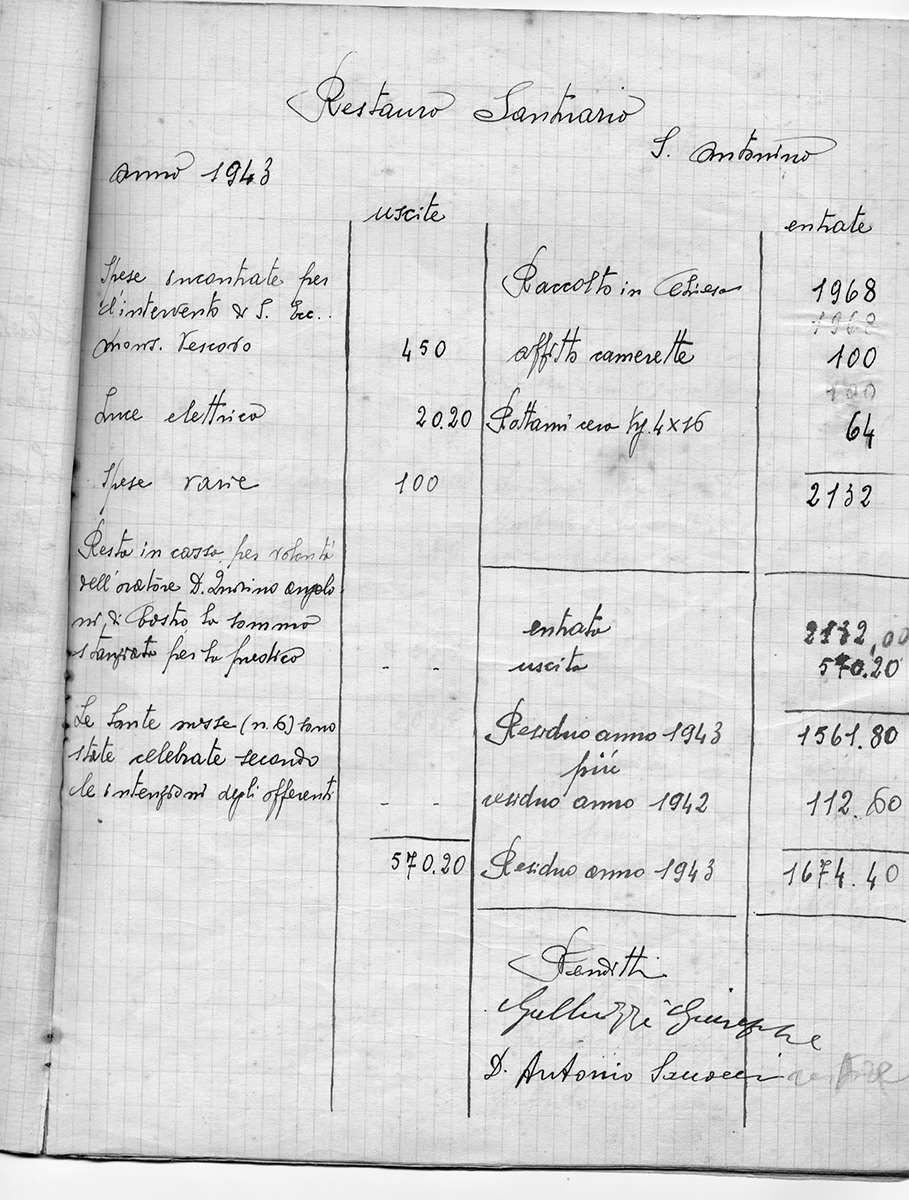 Restauro Santuario
S. Antonino
anno 1943
uscite
entrate
Spese incontrate per
l'intervento di S. Ecc..
Mons. Vescovo 450
Luce elettrica 20.20
Spese varie 100
Resta in cassa, per volontà
dell'oratore D. Quirino Angelo
ni, di la somma
stanziata per la predica - -
Le Sante messe (n. 6) sono
state celebrate secondo
le intenzioni degli offerenti - -
570.20
Raccolto in Chiesa 1968
1968
affitto camerette 100
100
Rottami cera Kg. 4x16 64
2132
entrata 2132,00
uscita 570.20
Residuo anno 1943 1561.80
più
residuo anno 1942 112.60
Residuo anno 1943 1674.40
Venditti
Galluzzi Giuseppe
D. Antonio